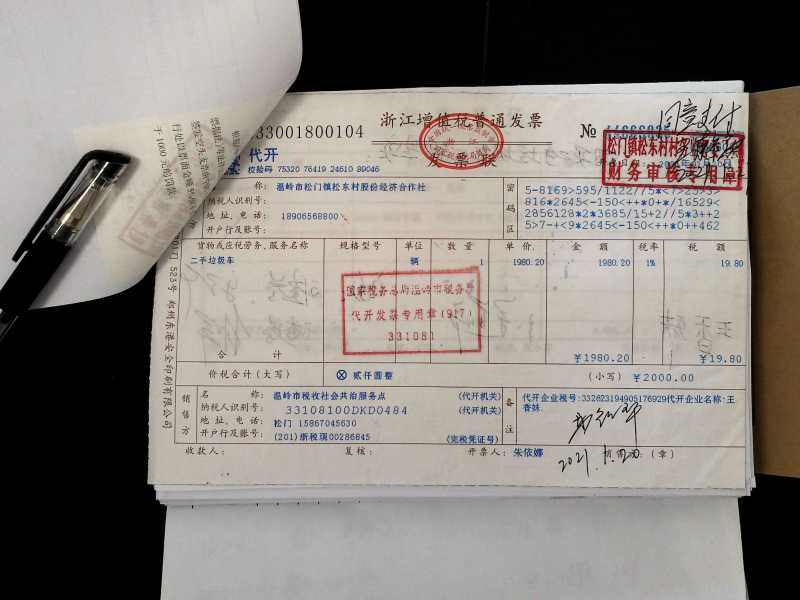 浙江增值税普通发票
033001800104
№
同意支付
代开
发票联
校验码 75320 76419 24610 89046
松门镇松东村村
财务审核专用章
名 称：温岭市松门镇松东村股份经济合作社
纳税人识别号：
地 址、电 话：18906568800
开户行及账号：
密码区
5-8169>595/1122//75*<7>25>3>
816*2645<-150<++*0+*/16529<
2856128*2*3685/15+2//5*3++2
5>7-+<9*2645<-150<++*0++462
货物或应税劳务、服务名称 规格型号 单位 数量 单价 金额 税率 税额
二手垃圾车 辆 1 1980.20 1980.20 1% 19.80
国家税务总局温岭市税务局
代开发票专用章(917)
331081
合 计 ￥1980.20 ￥19.80
价税合计（大写） ⊗ 贰仟圆整 （小写）￥2000.00
销售方
名 称：温岭市税收社会共治服务点 (代开机关)
纳税人识别号：33108100DKD0484 (代开机关)
地 址、电 话：松门 15867045630
开户行及账号：(201)浙税现00286845 (完税凭证号)
备注
代开企业税号:332623194905176929代开企业名称:王
香妹
收款人： 复核： 开票人：朱依娜 （章）
2021.1.20
523号 郑州东港安全印刷有限公司
于1000元的罚款